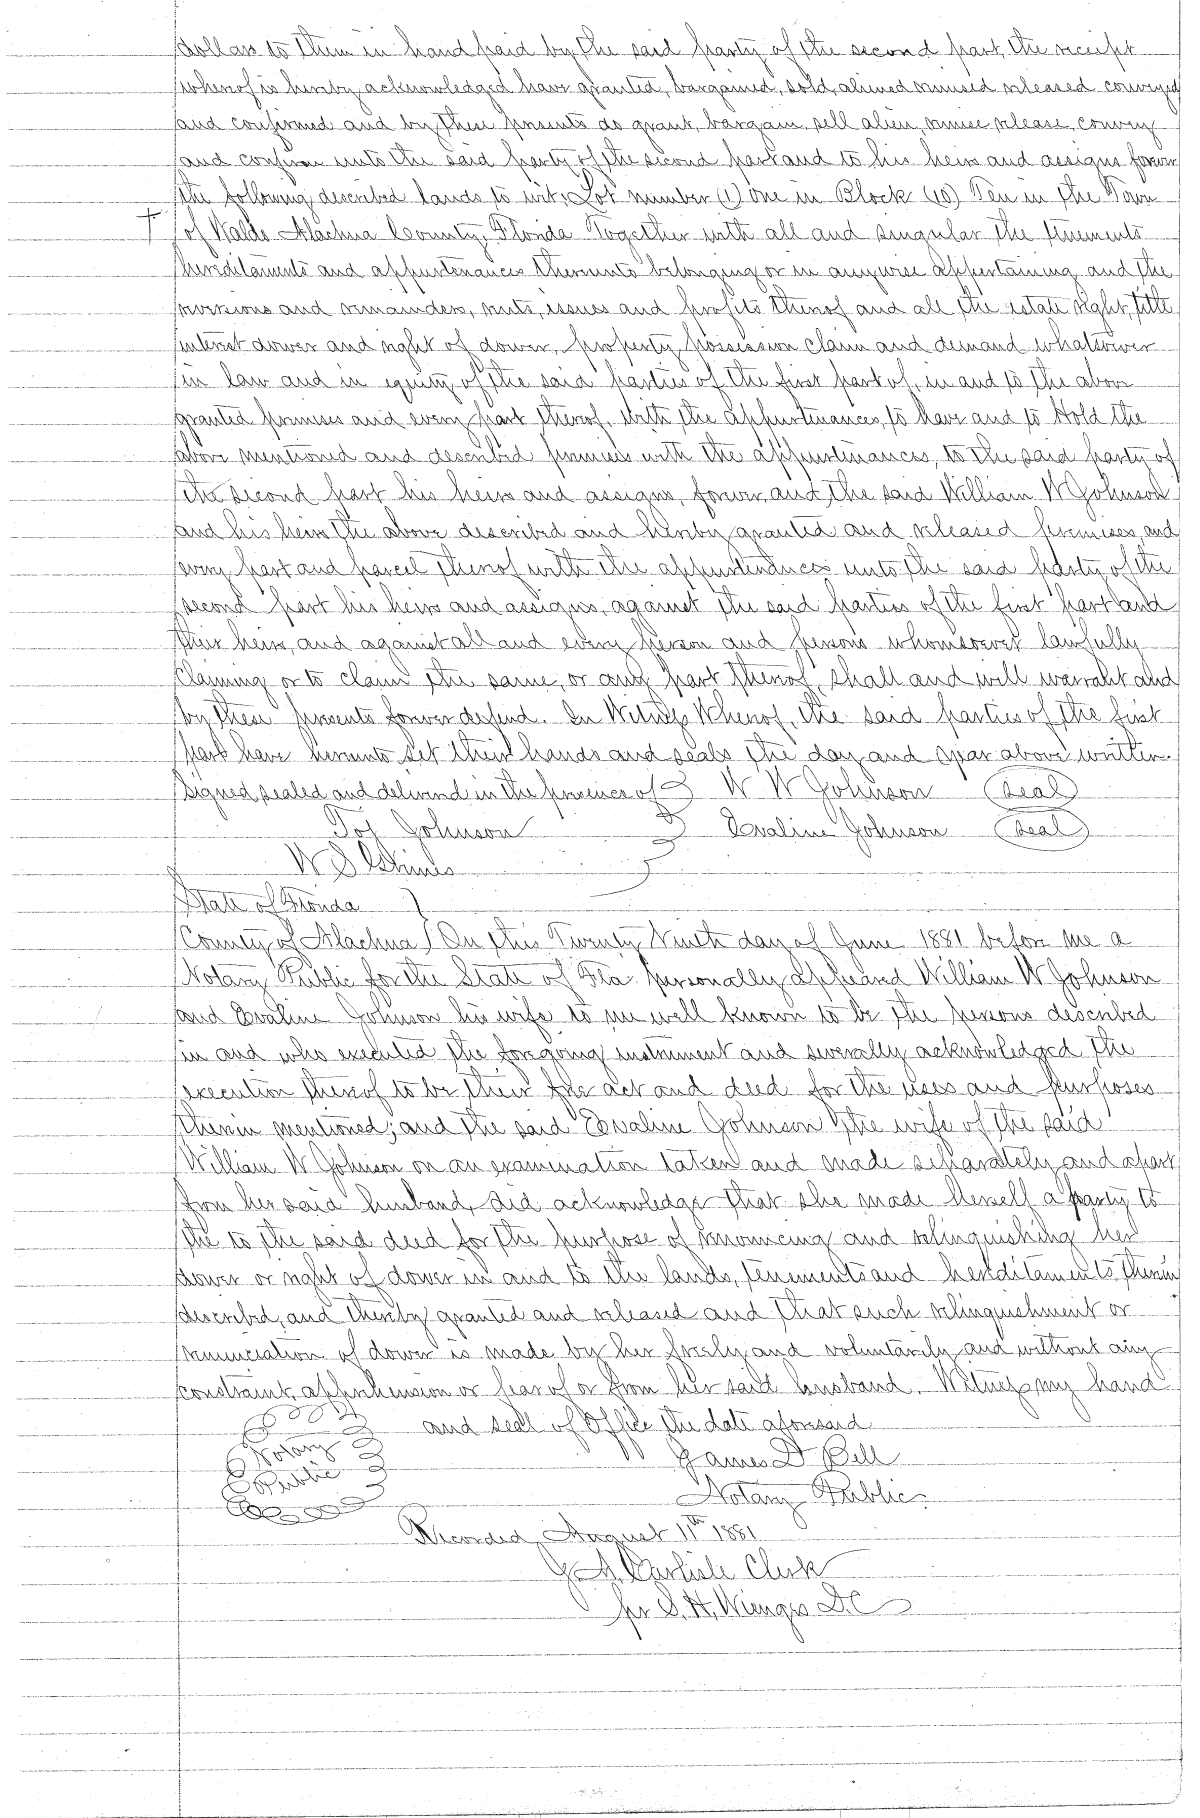 dollars to them in hand paid by the said party of the second part, the receipt
whereof is hereby acknowledged have granted, bargained, sold, aliened remised released conveyed
and confirmed and by these presents do grant, bargain, sell alien, remise release, convey
and confirm unto the said party of the second part and to his heirs and assigns forever
the following described lands to wit: Lot number (1) One in Block (10) Ten in the Town
of Waldo Alachua County, Florida Together with all and singular the tenements
hereditaments and appurtenances thereunto belonging or in anywise appertaining and the
reversions and remainders, rents, issues and profits thereof and all the estate right, title
interest dower and right of dower, property possession claim and demand whatsoever
in law and in equity of the said parties of the first part of, in and to the above
granted premises and every part thereof, with the appurtenances, to have and to Hold the
above mentioned and described premises with the appurtenances, to the said party of
the second part his heirs and assigns, forever, and the said William W Johnson
and his heirs the above described and hereby granted and released premises, and
every part and parcel thereof with the appurtenances unto the said party of the
second part his heirs and assigns, against the said parties of the first part and
their heirs, and against all and every person and persons whomsoever lawfully
claiming or to claim the same, or any part thereof, shall and will warrant and
by these presents forever defend. In Witness Whereof, the said parties of the first
part have hereunto set their hands and seals the day and year above written.
Signed sealed and delivered in the presence of W W Johnson (seal)
Johnson Evaline Johnson (seal)
W S
State of Florida
County of Alachua On this Twenty Ninth day of June 1881 before me a
Notary Public for the State of Fla personally appeared William W Johnson
and Evaline Johnson his wife to me well known to be the persons described
in and who executed the foregoing instrument and severally acknowledged the
execution thereof to be their free act and deed for the uses and purposes
therein mentioned; and the said Evaline Johnson the wife of the said
William W Johnson on an examination taken and made separately and apart
from her said husband, did acknowledge that she made herself a party to
the to the said deed for the purpose of renouncing and relinquishing her
dower or right of dower in and to the lands, tenements and hereditaments therein
described, and thereby granted and released and that such relinquishment or
renunciation of dower is made by her freely and voluntarily and without any
constraint, apprehension or fear of or from her said husband. Witness my hand
and seal of Office the date aforesaid
Notary
Public
James D Bell
Notary Public.
Recorded, August 11th 1881
J. A. Carlisle Clerk
per S. H. Wienges D.C